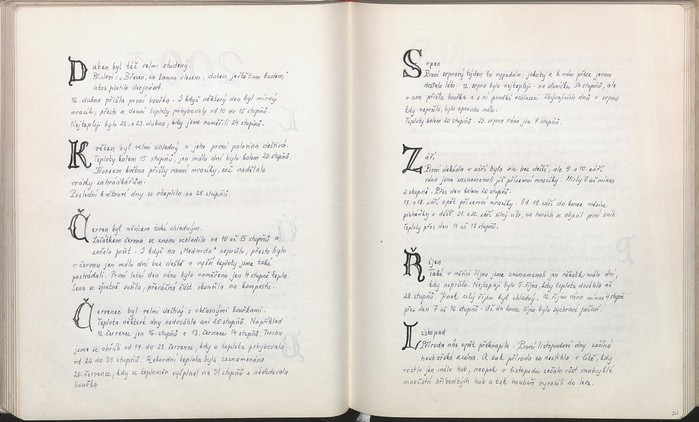 Duben byl též velmi studený.
Přísloví "Březen, za kamna vlezem, duben, ještě tam budem"
letos platilo dvojnásob.
16. dubna přišla první bouřka. I když některý den byl mírný
mrazík, přesto se denní teploty pohybovaly od 10 do 15 stupňů.
Nejteplejší bylo 22. a 23. dubna, kdy jsme naměřili 24 stupňů.
Květen byl velmi chladný a jeho první polovina deštivá.
Teploty kolem 15 stupňů, jen málo dní bylo kolem 20 stupňů.
Koncem května přišly ranní mrazíky, což nadělalo
vrásky zahrádkářům.
Poslední květnové dny se oteplilo na 28 stupňů.
Červen byl měsícem také chladným.
Začátkem června se znovu ochladilo na 10 až 15 stupňů a
začalo pršet. I když na "Medarda" nepršelo, přesto bylo
v červnu jen málo dní bez deště a vyšší teploty jsme také
postrádali. První letní den ráno bylo naměřeno jen 4 stupně tepla.
Sena se špatně sušila, převážná část skončila na kompostu.
Červenec byl velmi deštivý s občasnými bouřkami.
Teplota některé dny nedosáhla ani 20 stupňů. Například
12. července jen 16 stupňů a 13. července 14 stupňů. Trochu
jsme se ohřáli od 19. do 23. července, kdy se teplota pohybovala
od 26 do 30 stupňů. Rekordní teplota byla zaznamenána
20. července, kdy se teploměr vyšplhal na 31 stupňů a následovala
bouřka.
Srpen
První srpnový týden to vypadalo, jakoby se k nám přece jenom
dostalo léto. 12. srpna bylo nejtepleji - na sluníčku 34 stupňů, ale
v noci přišla bouřka a s ní prudké ochlazení. Zbývajících dnů v srpnu
kdy nepršelo, bylo opravdu málo.
Teploty kolem 20 stupňů. 22. srpna ráno jen 7 stupňů.
Září
První dekáda v září byla sice bez deště, ale 9. a 10. září
ráno jsme zaznamenali již přízemní mrazíky. Místy 0 až mínus
2 stupně. Přes den kolem 20 stupňů.
17. a 18. září opět přízemní mrazíky. Od 19. září do konce měsíce
plískanice a déšť. 21. a 22. září silný vítr, na horách se objevil první sníh.
Teploty přes den 11 až 17 stupňů.
Říjen
Také v měsíci říjnu jsme zaznamenali jen několik málo dní,
kdy nepršelo. Nejteplejší bylo 5. října, kdy teplota dosáhla až
28 stupňů. Jinak celý říjen byl chladný, 12. října ráno mínus 4 stupně
přes den 7 až 16 stupňů. Až do konce října bylo sychravé počasí.
Listopad
Příroda nás opět překvapila. První listopadové dny začíná
houbařská sezóna. A tak příroda co nestihla v létě, kdy
rostlo jen málo hub, naopak v listopadu začalo růst neobvyklé
množství hřibovitých hub a tak houbaři vyrazili do lesa.